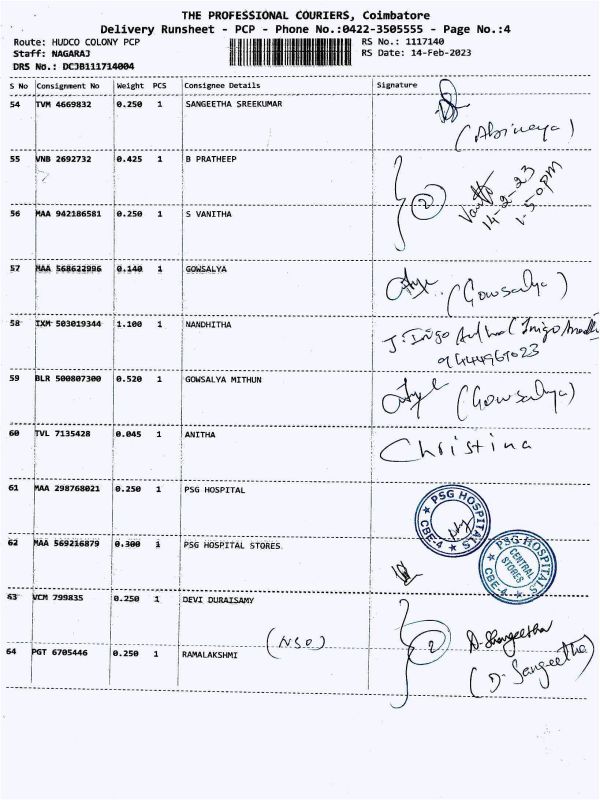 THE PROFESSIONAL COURIERS, Coimbatore
Delivery Runsheet - PCP - Phone No.:0422-3505555 - Page No.:4
Route: HUDCO COLONY PCP RS No.: 1117140
Staff: NAGARAJ RS Date: 14-Feb-2023
DRS No.: DCJB111714004
S No Consignment No Weight PCS Consignee Details Signature
54 TVM 4669832 0.250 1 SANGEETHA SREEKUMAR
(Abinaya)
55 VNB 2692732 0.425 1 B PRATHEEP
2 14-2-23
1-50PM
56 MAA 942186581 0.250 1 S VANITHA
57 MAA 568622996 0.140 1 GOWSALYA
(Gowsalya)
58 IXM 503019344 1.100 1 NANDHITHA
J. Inigo
59 BLR 500807300 0.520 1 GOWSALYA MITHUN
(Gowsalya)
60 TVL 7135428 0.045 1 ANITHA
Christina
61 MAA 298768021 0.250 1 PSG HOSPITAL
PSG HOSPITALS
CBE-4
62 MAA 569216879 0.300 1 PSG HOSPITAL STORES
PSG-HOSPITALS
CENTRAL STORES
CBE-4
63 VCM 799835 0.250 1 DEVI DURAISAMY
(NSO) 2 D. Sangeetha
64 PGT 6705446 0.250 1 RAMALAKSHMI
(D. Sangeetha)